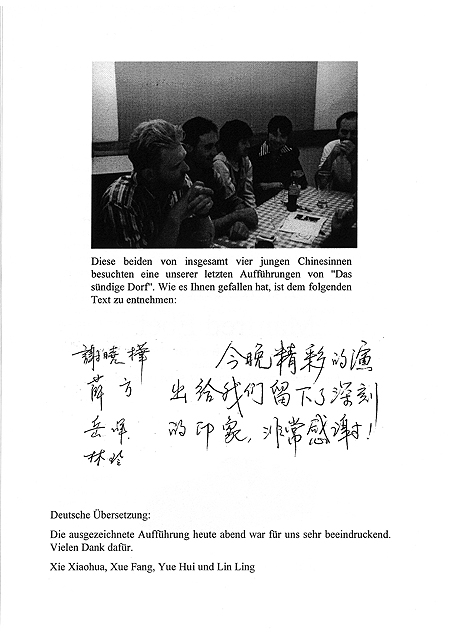 Diese beiden von insgesamt vier jungen Chinesinnen
besuchten eine unserer letzten Aufführungen von "Das
sündige Dorf". Wie es Ihnen gefallen hat, ist dem folgenden
Text zu entnehmen:
謝曉樺
薛方
岳暉
林玲
今晚精彩的演
出给我们留下了深刻
的印象,非常感谢!
Deutsche Übersetzung:
Die ausgezeichnete Aufführung heute abend war für uns sehr beeindruckend.
Vielen Dank dafür.
Xie Xiaohua, Xue Fang, Yue Hui und Lin Ling